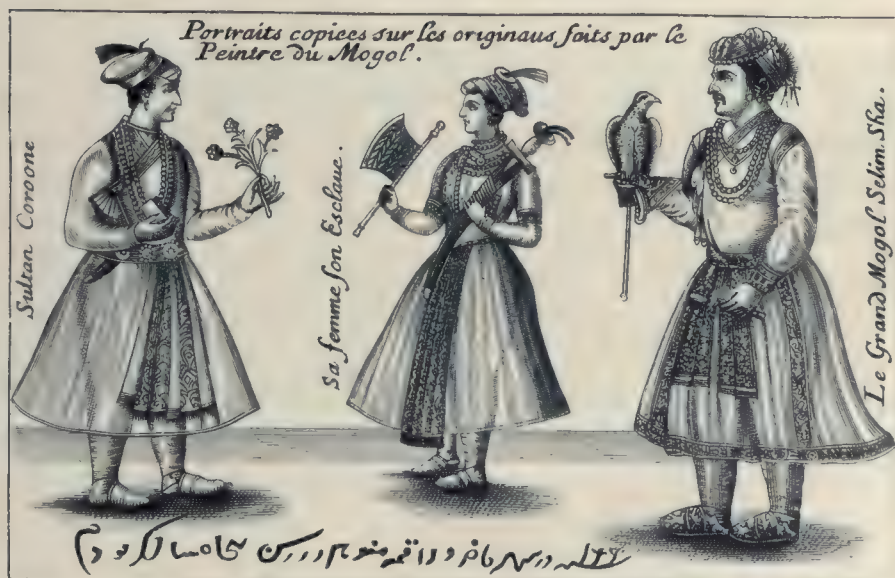 Portraits copiees sur les originaus faits par le
Peintre du Mogol.
Sultan Coroone
Sa femme son Esclaue.
Le Grand Mogol Selim Sha.